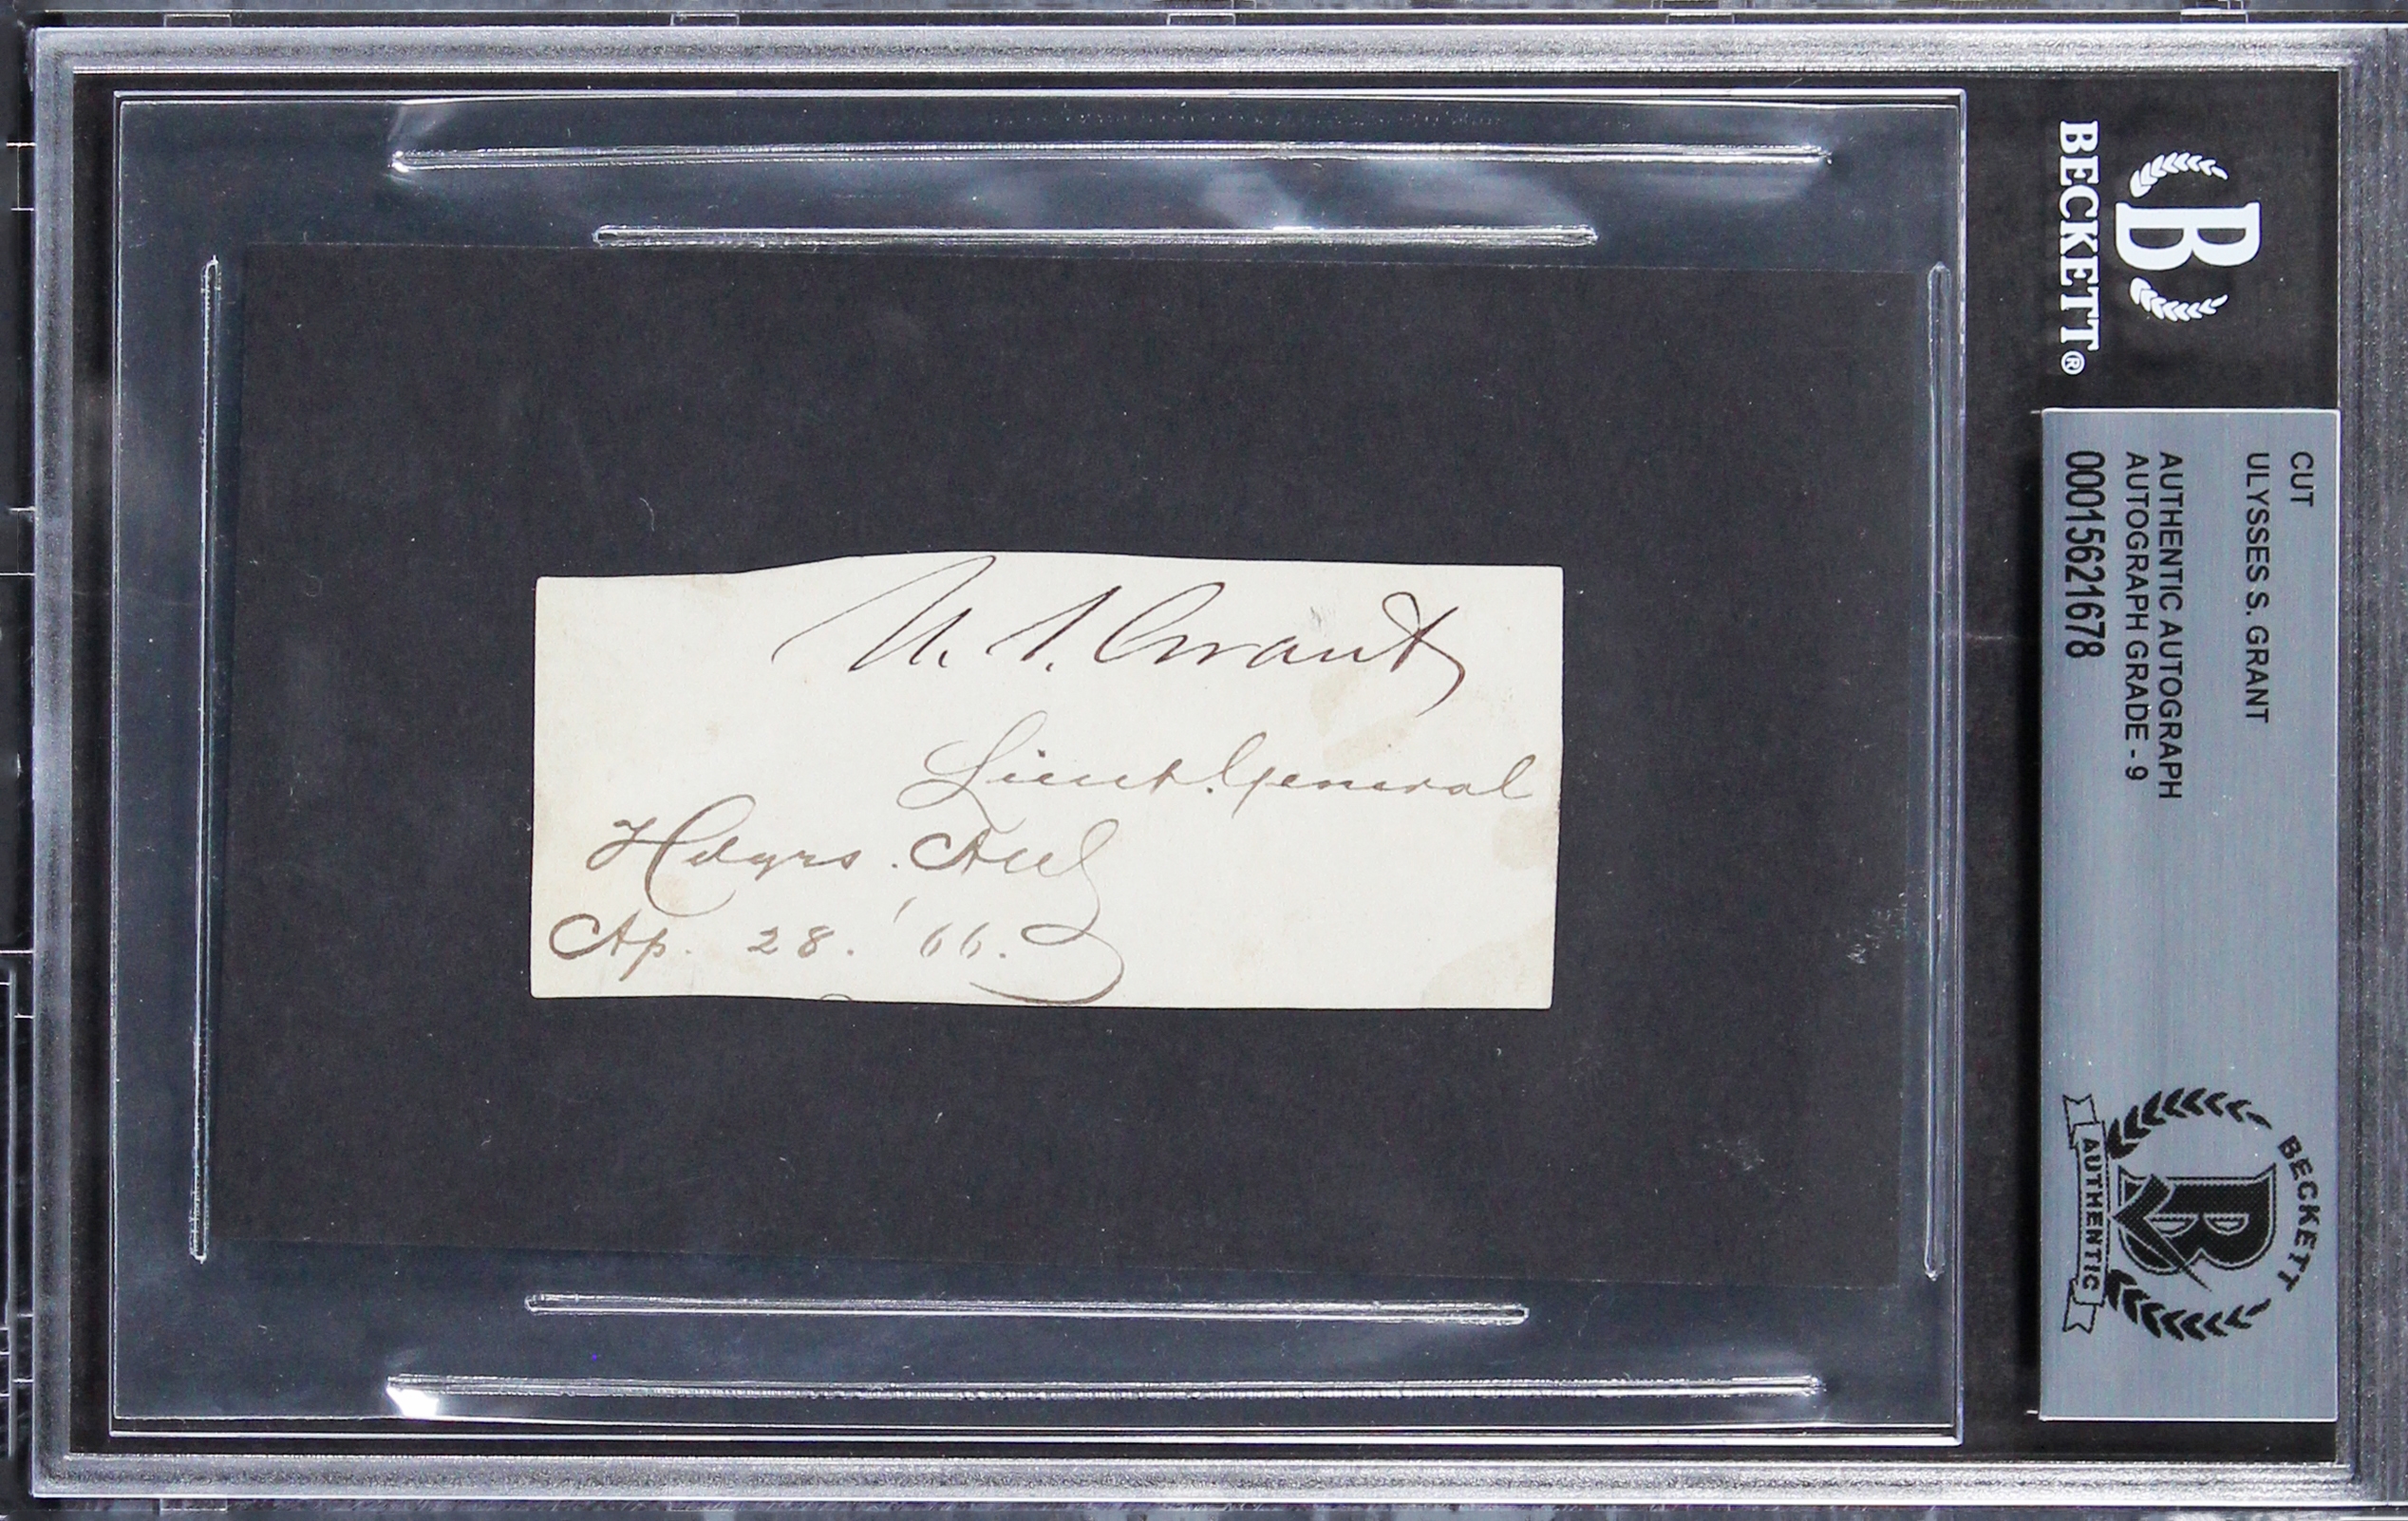 U. S. Grant
Lieut. General
Hdqrs. AUS
Ap. 28. '66.
BECKETT®
CUT
ULYSSES S. GRANT
AUTHENTIC AUTOGRAPH
AUTOGRAPH GRADE - 9
00015621678
BECKETT
AUTHENTIC